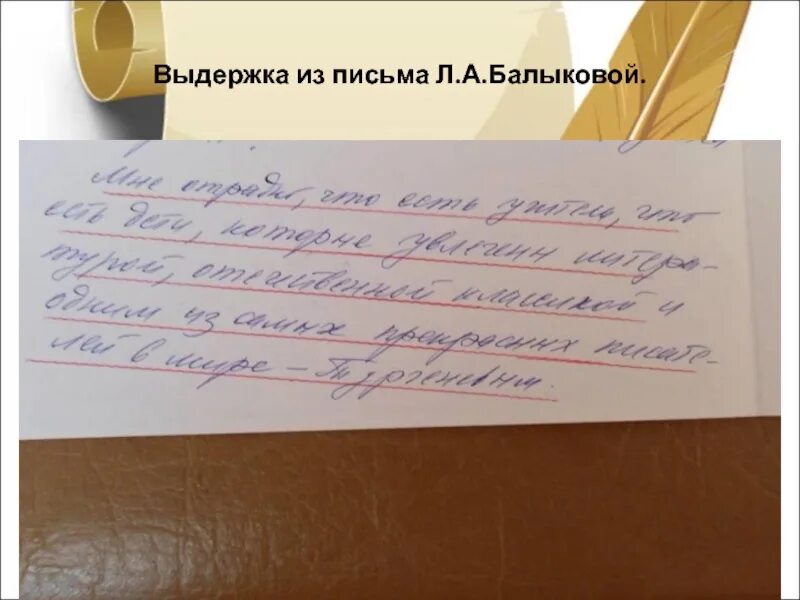 Выдержка из письма Л.А.Балыковой.
Мне отрадно, что есть учитель, что
есть дети, которые увлечены литера-
турой, отечественной классикой и
одним из самых прекрасных писате-
лей в мире – Тургеневым.